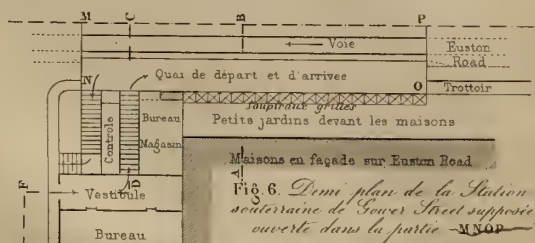 M C B P
Voie Euston
Road
N Quai de départ et d'arrivée O Trottoir
soupiraux grilles
Controle Bureau Petits jardins devant les maisons
Magasin
Maisons en façade sur Euston Road
F D A
Vestibule
Fig. 6. Demi plan de la Station
souterraine de Gower Street supposée
ouverte dans la partie MNOP
Bureau